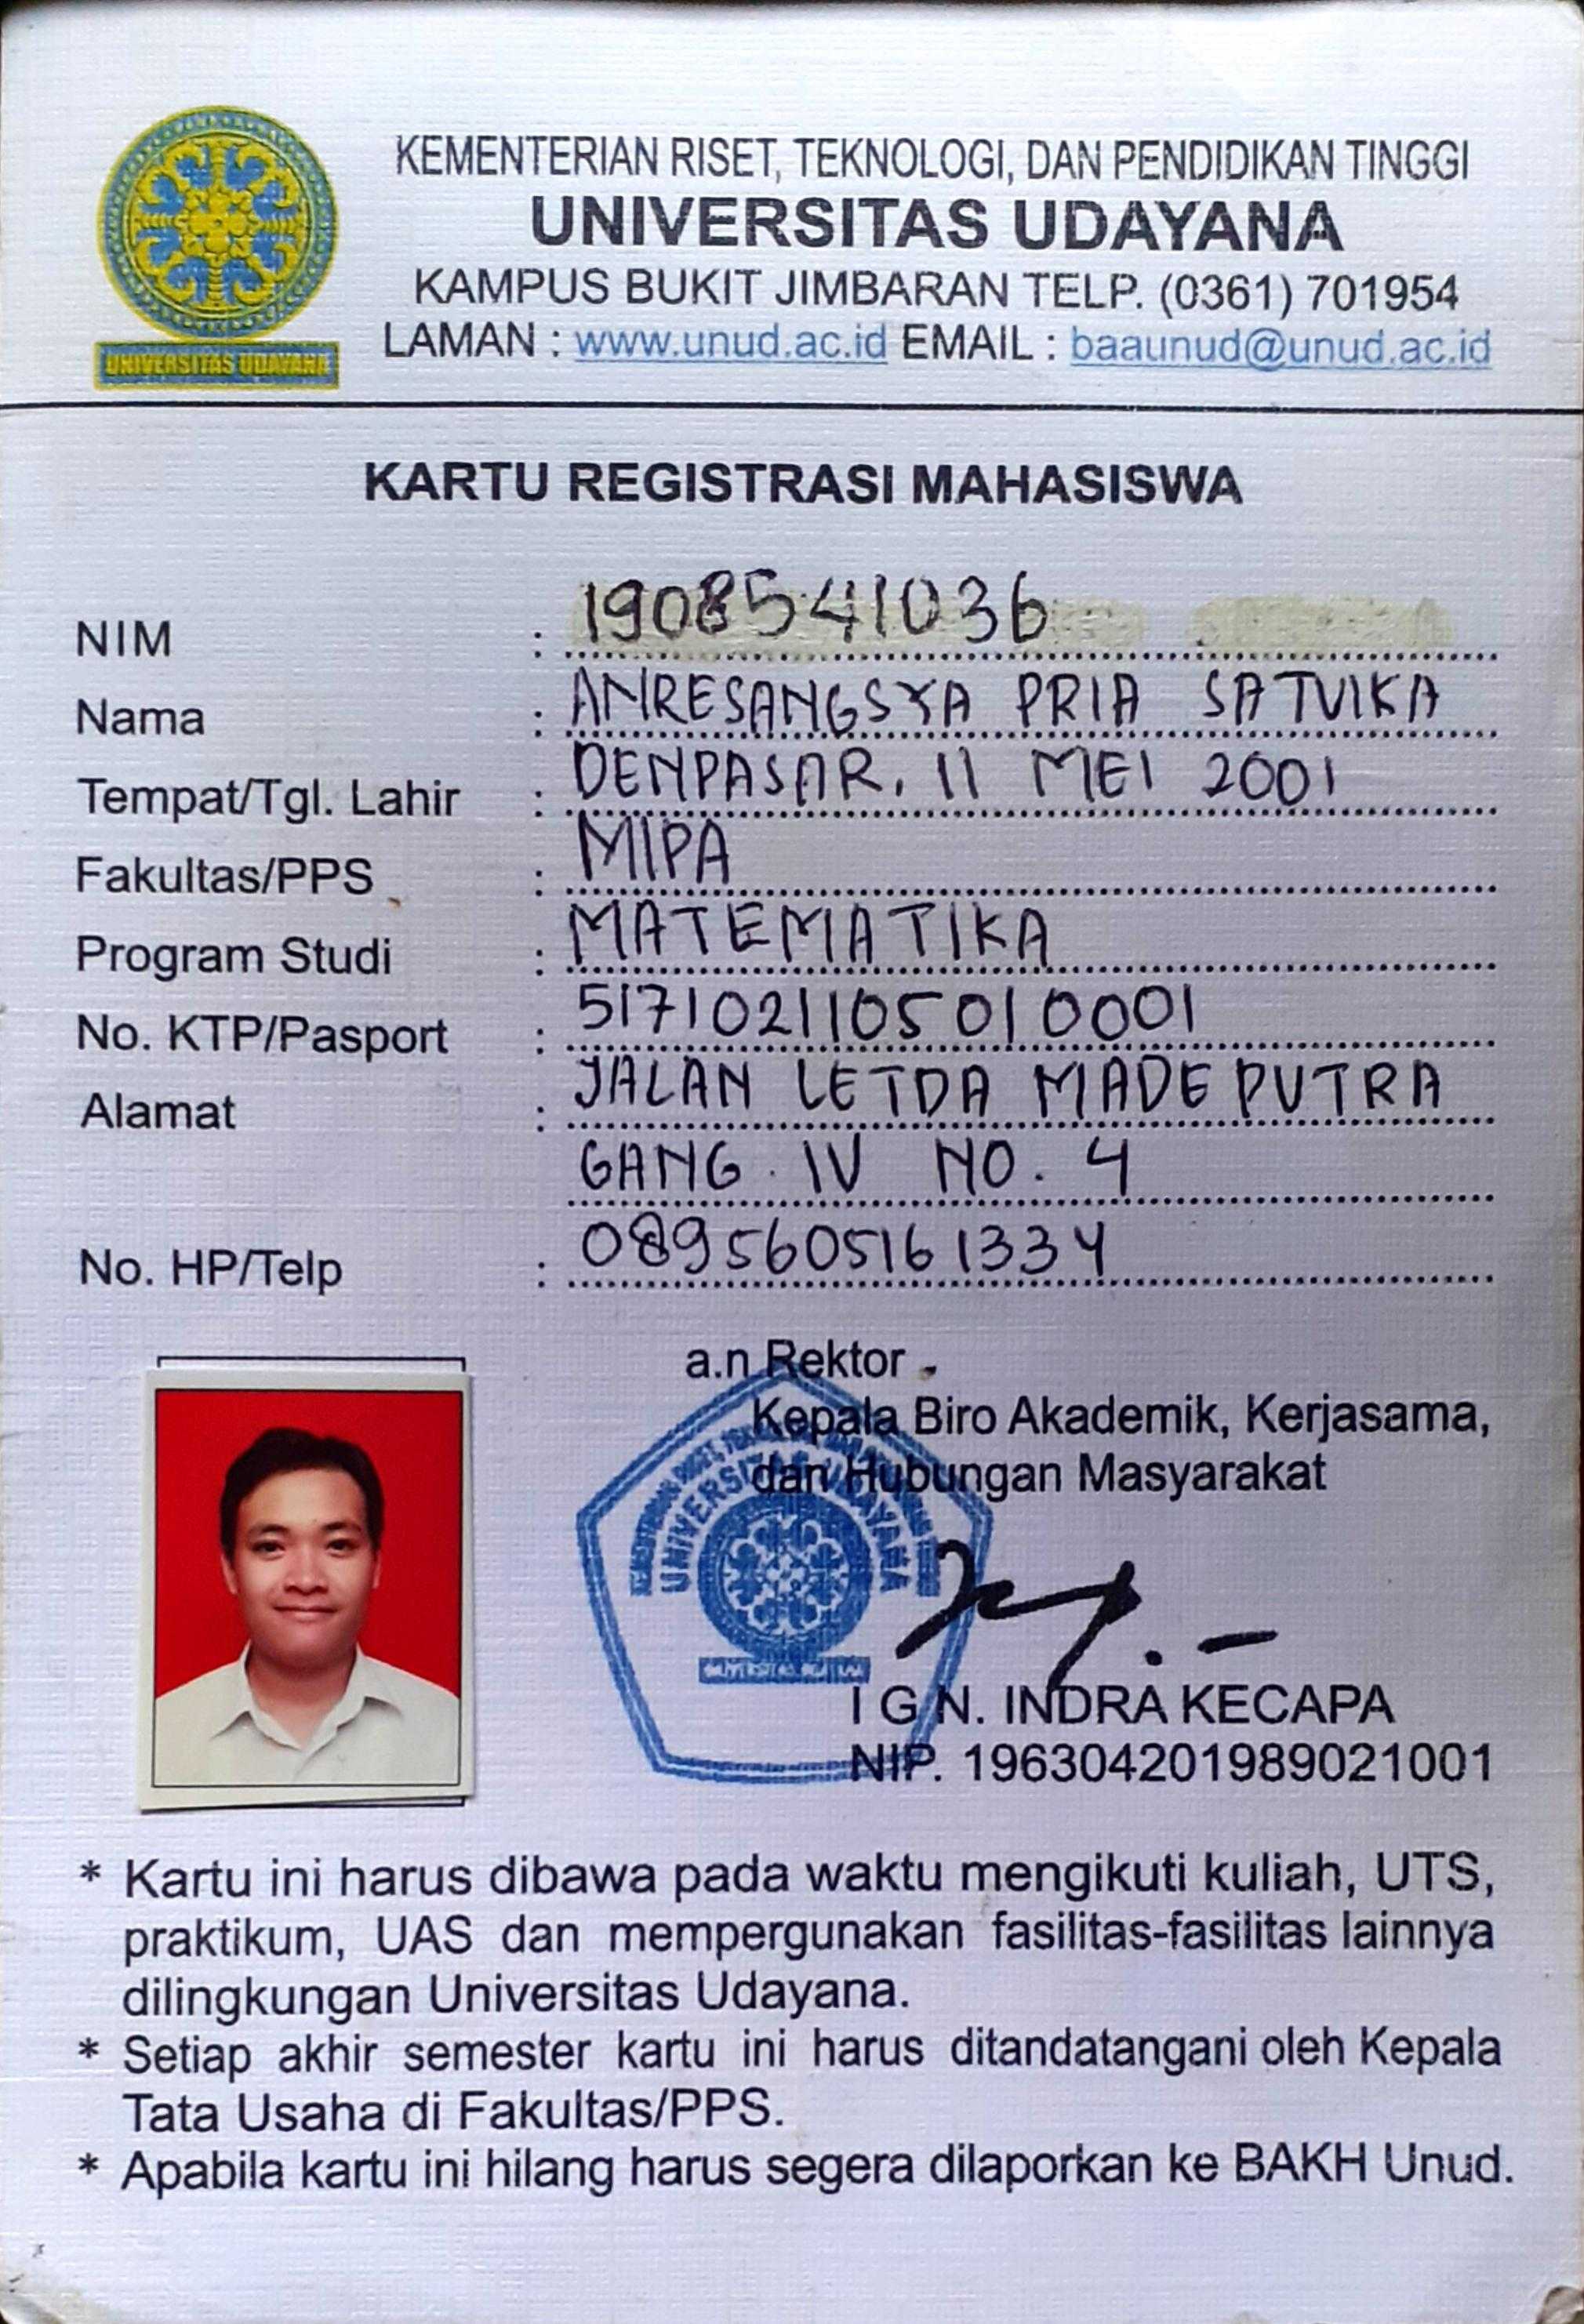 KEMENTERIAN RISET, TEKNOLOGI, DAN PENDIDIKAN TINGGI
UNIVERSITAS UDAYANA
KAMPUS BUKIT JIMBARAN TELP. (0361) 701954
LAMAN : www.unud.ac.id EMAIL : baaunud@unud.ac.id
UNIVERSITAS UDAYANA
KARTU REGISTRASI MAHASISWA
NIM : 1908541036
Nama : ANRESANGSYA PRIA SATVIKA
Tempat/Tgl. Lahir : DENPASAR, 11 MEI 2001
Fakultas/PPS : MIPA
Program Studi : MATEMATIKA
No. KTP/Pasport : 5171021105010001
Alamat : JALAN LETDA MADE PUTRA
GANG. IV NO. 4
No. HP/Telp : 0895605161334
a.n Rektor
Kepala Biro Akademik, Kerjasama,
dan Hubungan Masyarakat
UNIVERSITAS UDAYANA
I G N. INDRA KECAPA
NIP. 196304201989021001
* Kartu ini harus dibawa pada waktu mengikuti kuliah, UTS,
praktikum, UAS dan mempergunakan fasilitas-fasilitas lainnya
dilingkungan Universitas Udayana.
* Setiap akhir semester kartu ini harus ditandatangani oleh Kepala
Tata Usaha di Fakultas/PPS.
* Apabila kartu ini hilang harus segera dilaporkan ke BAKH Unud.